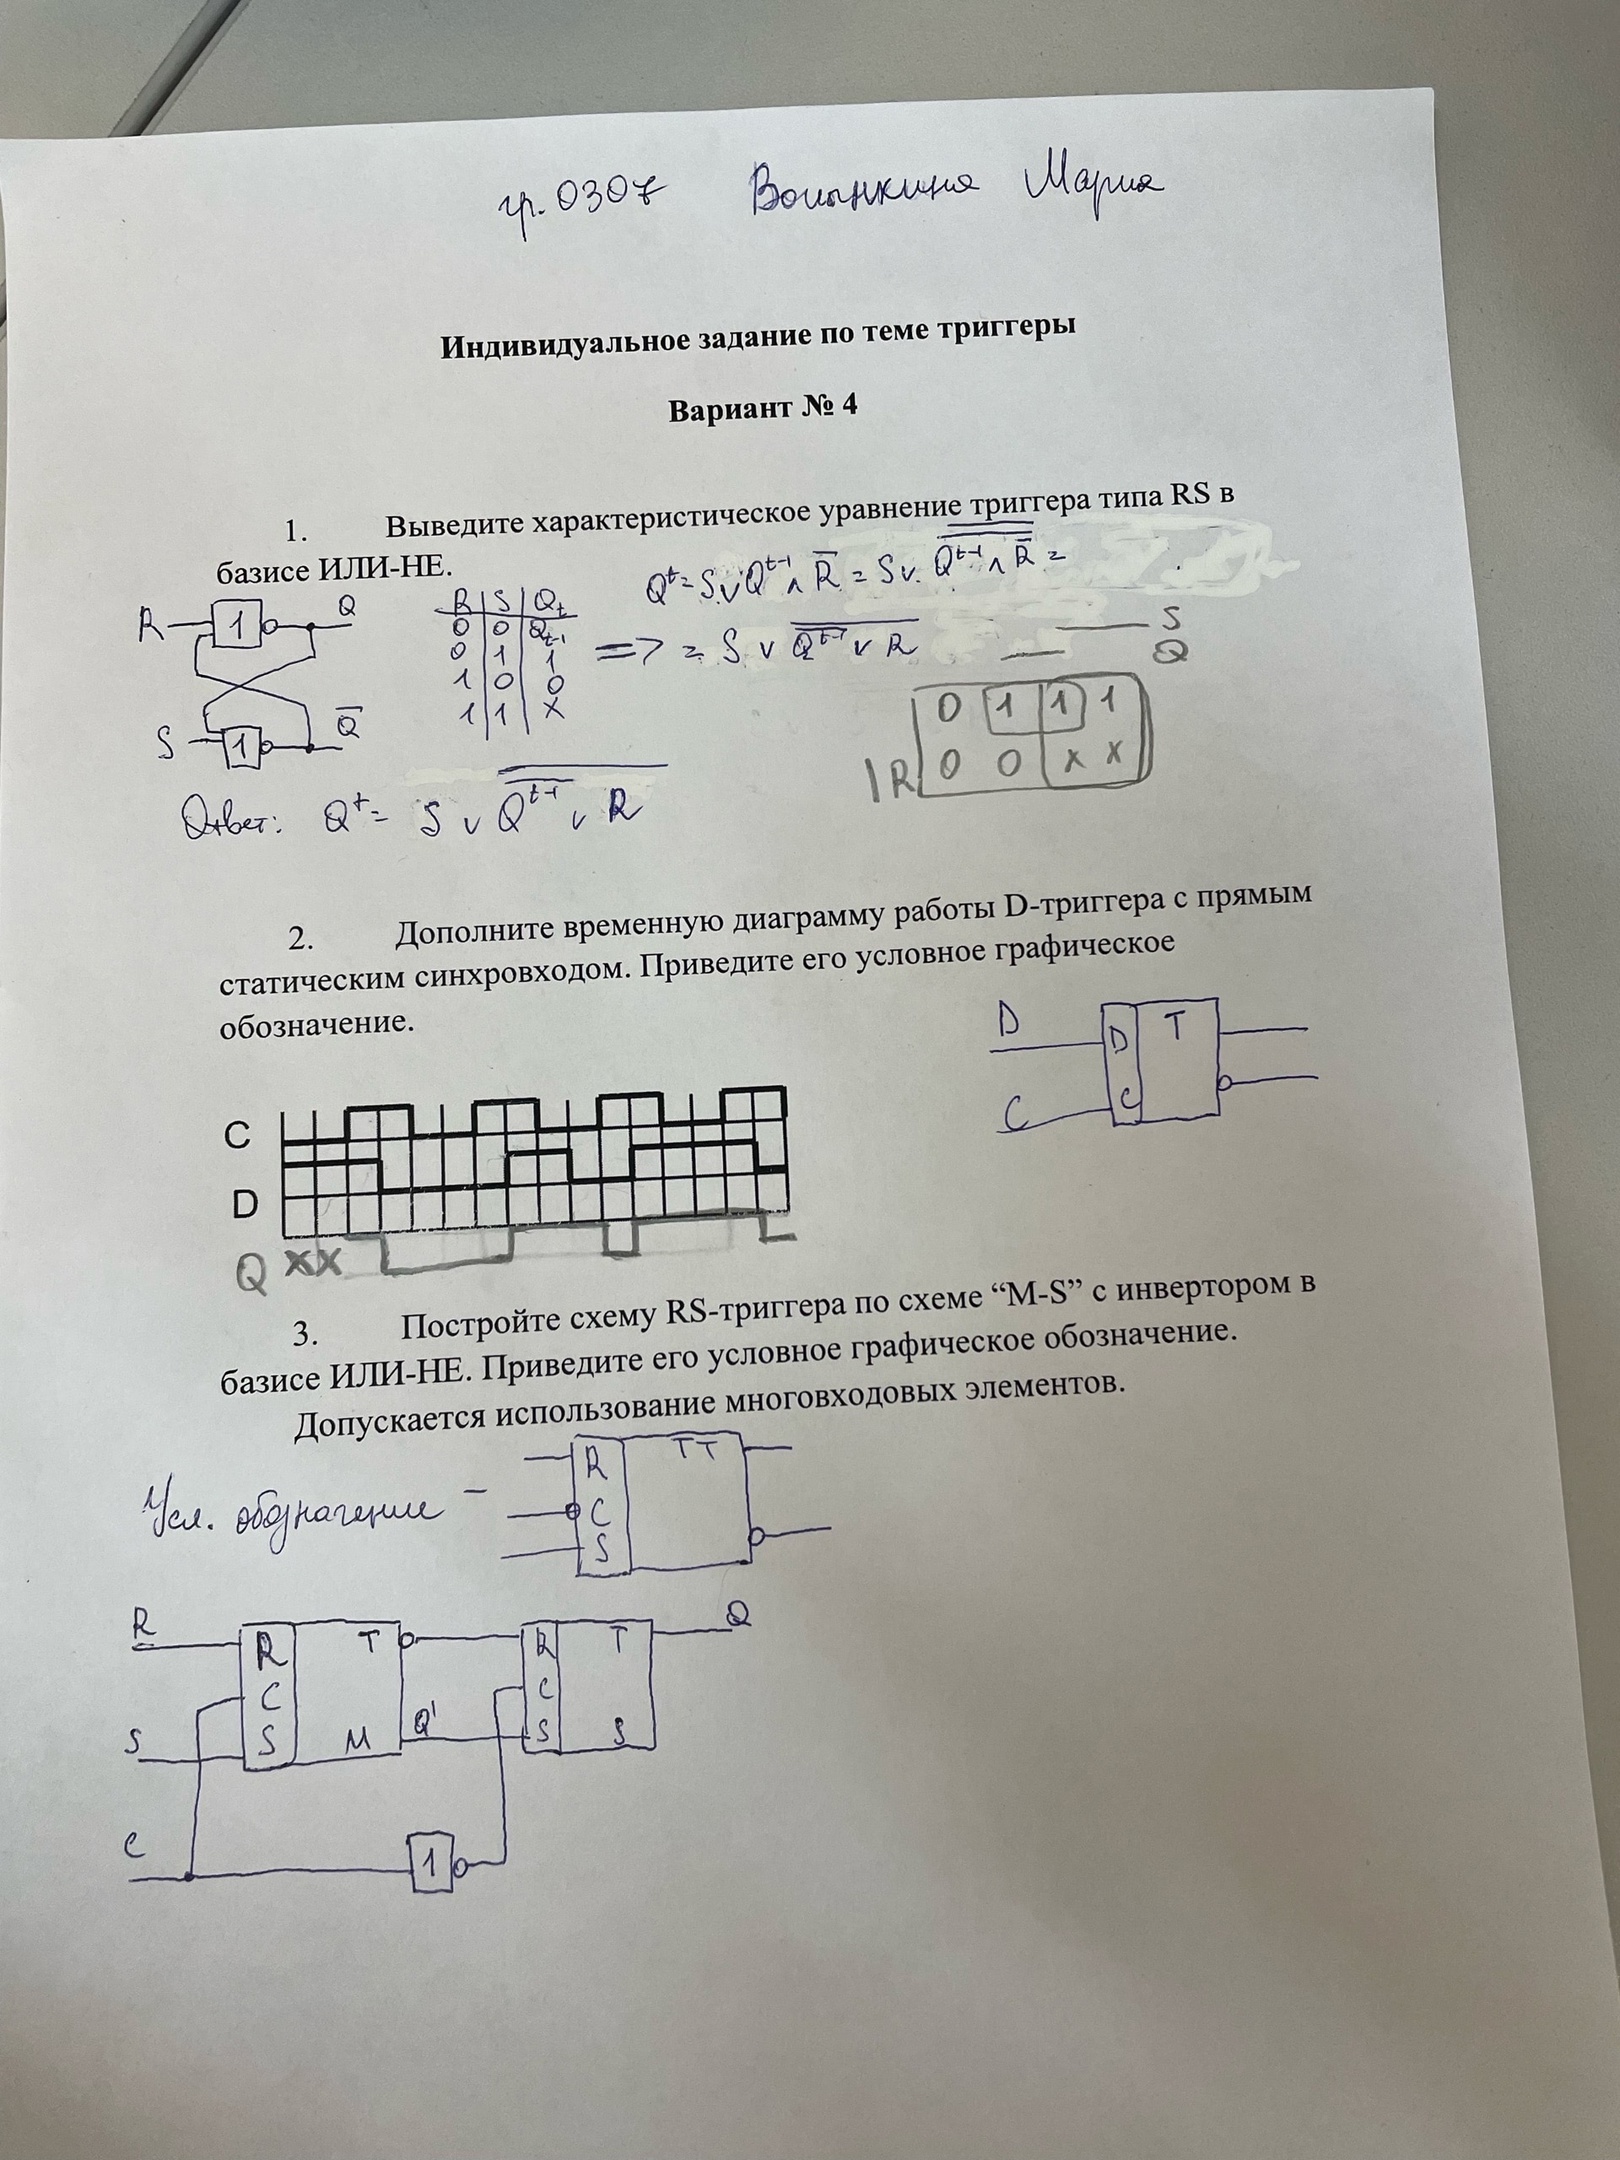 гр. 0307 Волынкина Мария
Индивидуальное задание по теме триггеры
Вариант № 4
1. Выведите характеристическое уравнение триггера типа RS в
базисе ИЛИ-НЕ.
Q^t = S ∨ Q^{t-1} ∧ R̅ = S ∨ Q^{t-1} ∧ R̅ =
=> = S ∨ Q^{t-1} ∨ R
R 1 Q
S 1 Q̅
R S Q_t
0 0 Q_{t-1}
0 1 1
1 0 0
1 1 X
S
Q
0 1 1 1
R 0 0 x x
Ответ: Q^t = S ∨ Q^{t-1} ∨ R
2. Дополните временную диаграмму работы D-триггера с прямым
статическим синхровходом. Приведите его условное графическое
обозначение.
D D T
C C
C
D
Q XX
3. Постройте схему RS-триггера по схеме “M-S” с инвертором в
базисе ИЛИ-НЕ. Приведите его условное графическое обозначение.
Допускается использование многовходовых элементов.
Усл. обозначение –
R TT
C
S
R R T R T Q
C C
S S M Q' S S
C 1